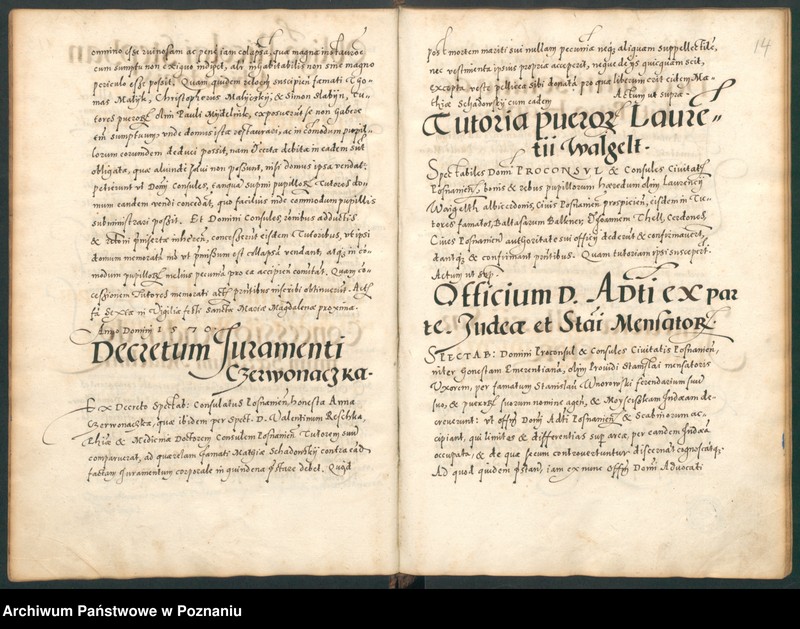 omnino esse ruinosam ac pene iam colapsā, quæ magnæ instauroē
cum sumptu non exiguo indiget, alr̄ inhabitabilis non sine magno
periculo esse possit. Quam quidem relocīm suscipien̄ famati Tho-
mas Malyk, Christophorus Malyrskÿ, & Simon Slabijn, Tu-
tores pueroꝝ olim Pauli Mydelnik, exposuerūt se non habere
sumptuum, unde domus ista restaurari, ac in cōmodum pupil-
lorum eorundem deduci possit, nam & certa debita in eadem sūt
obligata, quæ aliunde solui non possunt, nisi domus ipsa vendat:
petierunt ut Domī Consules, tanquā supmi pupilloꝝ Tutores do-
mum eandem vendi concedāt, quo facilius inde commodum pupillis
subministrari possit. Et Domini Consules rōnibus adductis
& petōni pn̄iserta inheren̄, concesserūt eisdem Tutoribus, ut ipsi
domum memoratā ut pn̄missum est collapsā vendant, atq̨ in cō-
modum pupilloꝝ melius pecuniā pro ea accipien̄ cōmitāt. Quam cō-
cessionem Tutores memorati actis pn̄tibus inscribi obtinuerūt. Acts
fr̄ Sexta in Vigilia festi Sanctæ Mariæ Magdalenæ proxima.
Anno Domini 1570.
Decretum Juramenti
Czerwonaczka.
Ex Decreto Spectab: Consulatus Posnanien̄ honesta Anna
Czerwonaczka, quæ ibidem per Spect: D. Valentinum Reschka,
Phiæ & Medicinæ Doctorem Consulem Posnanien̄ Tutorem suū
comparuerat, ad querelam famati Mathiæ Schadowskÿ contra eād
factam Juramentum corporale in quindena pr̄stare debet. Quod
14
post mortem mariti sui nullam pecuniā neq̨ aliquam suppellectilē,
nec vestimenta ipsius propria acceperit, neque de ÿs quicquam scit,
excepta veste pellicea sibi donata pro qua liberum erit eidem Ma-
thiæ Schadowskÿ cum eadem Actum ut supra.
Tutoria pueroꝝ Laure-
tii Walgelt.
Spectabiles Domī PROCONSUL & Consules Civitatis
Posnanien̄, bonis & rebus pupillorum hæredum olim Laurencÿ
Waigelth albicerdonis, Civis Posnanien̄ prospicien̄, eisdem in Tu-
tores famatos, Baltasarum Balkner, & Joannem Thell, Cerdones
Cives Posnanien̄ authoritate sui officÿ dederūt & confirmauerūt,
dantq̨ & confirmant pn̄tibus. Quam tutoriam ipsi suscepert.
Actum ut sup̄.
Officium D. Adti ex par
te Judeæ et Stāi Mensatoꝝ.
SPECTAB: Domini Proconsul & Consules Civitatis Posnanien̄,
inter honestam Emerentianā, olim Providi Stanislai mensatoris
Uxorem, per famatum Stanislaū Wnorowskÿ ferendarium suū
suo, & pueroꝝ suorum nomine agen̄, & Moÿsciskam Judæam de-
creuerunt: ut offm̄ Domī Adti Posnanien̄ & Scabinorum ac-
cipiant, qui limites & differentias sup area, per eandem Judæā
occupata, & de qua secum controvertuntur discernāt, cognoscātq̨.
Ad quod quidem pr̄stan̄, iam ex nunc offm̄ Domī Advocati
Archiwum Państwowe w Poznaniu